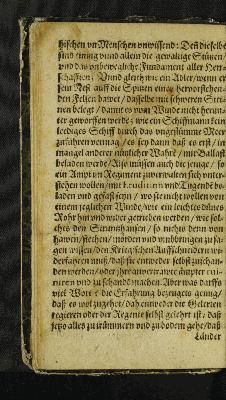 hischen vn Menschen vnwissend: Deñ dieselbe
sind einig vnd allein die gewaltige Stützen/
vnd das vnbewegliche Fundament aller Her-
schafften: Vnnd gleich wie ein Adler/ wenn er
sein Nest auff die Spitzen eines hervorstehen-
den Felsen bawet/ dasselbe mit schweren Stei-
nen belegt/ damit es vom Winde nicht herun-
ter geworffen werde: wie ein Schiffmann kein
lediges Schiff durch das vngestümme Meer
zuführen vermag/ es sey dann daß es erst/ in
mangel anderer nützlicher Wahre/ mit Ballast
beladen werde/ Also müssen auch die jenige/ so
ein Ampt vn Regiment zuverwalten sich unter-
stehen wollen/ mit erudition vnd Tugend be-
laden vnd gefast seyn/ wo sie nicht wollen von
einem jeglichen Winde/ wie ein leichtes dünes
Rohr hin vnd wider getrieben werden/ wie sol-
ches den Stumshansen/ so nichts denn von
hawen/ stechen/ morden vnd vmbbringen zu sa-
gen wissen/ den Kriegischen Auffschneidern wi-
derfahren muß/ daß sie entweder selbst zuschan-
den werden/ oder ihre anvertrawte häupter rui-
niren vnd zu schande machen. Aber was darffs
viel Wort? die Erfahrung bezeugets gnug/
daß es wol zugehet/ daß entweder die Gelerten
regieren oder der Regente selbst gelehrt ist/ daß
jetzo alles zu trümmern vnd zu bodem gehe/ daß
Länder